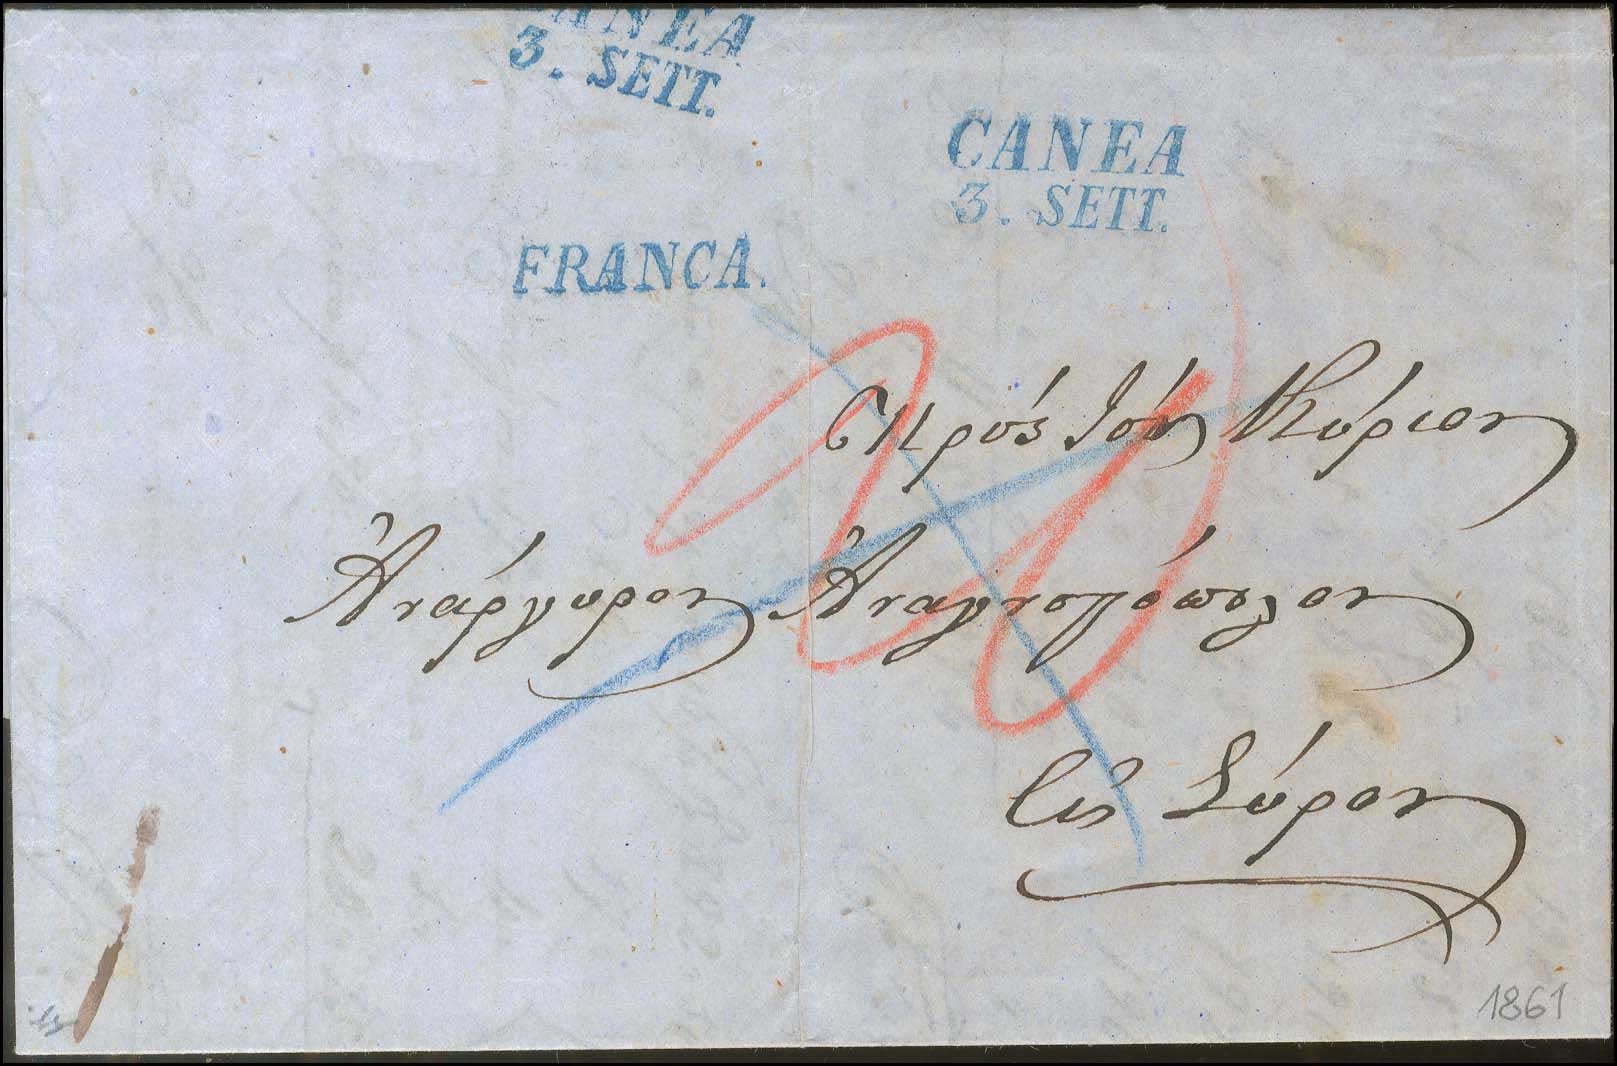 CANEA
3. SETT.
CANEA
3. SETT.
FRANCA.
20
Πρός τόν Κύριον
Ἀνάργυρον Ἀναγνοστόπουλον
Εἰς Σύρον
1861